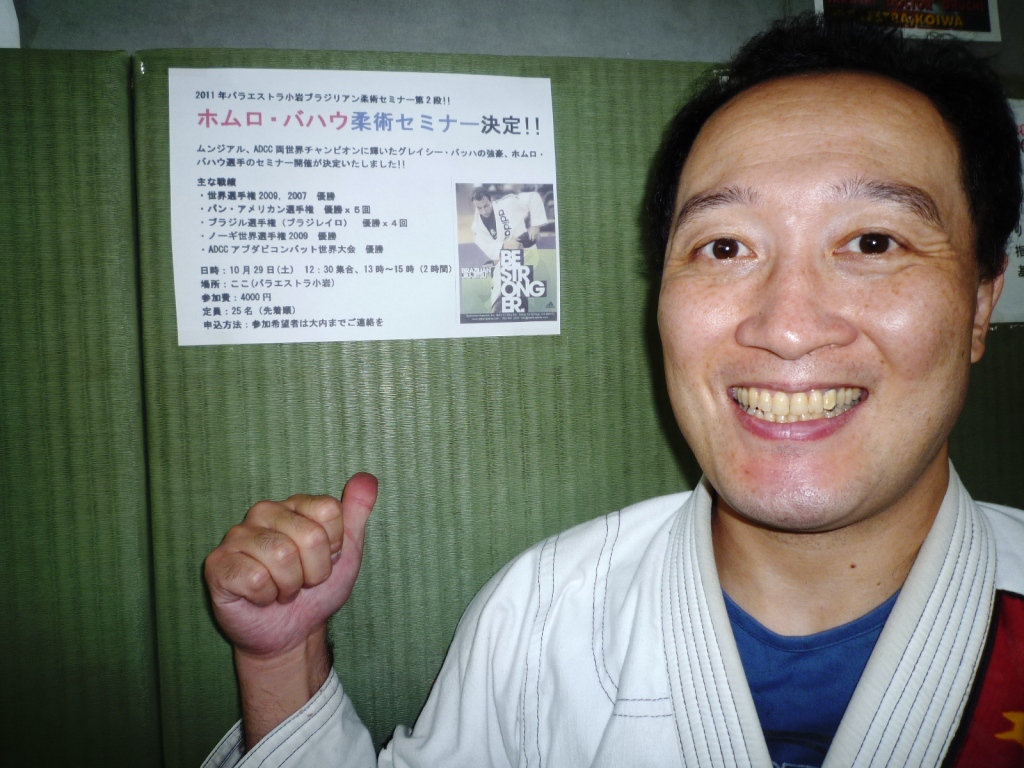 STRA KOIWA
2011年パラエストラ小岩ブラジリアン柔術セミナー第2段!!
ホムロ・バハウ柔術セミナー決定!!
ムンジアル、ADCC 両世界チャンピオンに輝いたグレイシー・バッハの強豪、ホムロ・
バハウ選手のセミナー開催が決定いたしました!!
主な戦績
・世界選手権 2009, 2007　優勝
・パン・アメリカン選手権　優勝 x 5 回
・ブラジル選手権（ブラジレイロ）　優勝 x 4 回
・ノーギ世界選手権 2009　優勝
・ADCC アブダビコンバット世界大会　優勝
日時：10 月 29 日(土)　12：30 集合、13 時～15 時 (2 時間)
場所：ここ(パラエストラ小岩)
参加費：4000 円
定員：25 名（先着順）
申込方法：参加希望者は大内までご連絡を
adidas
BE
STR
ONG
ER.
BRAZILIAN